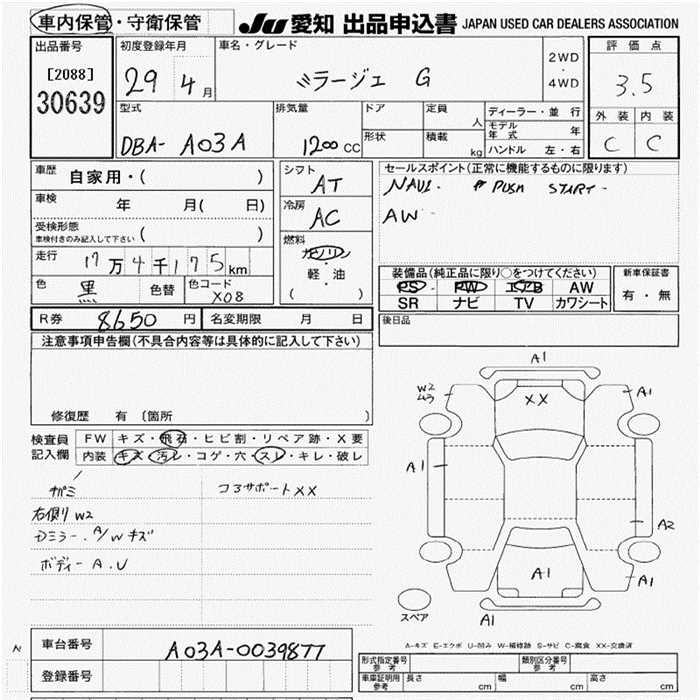 車内保管・守衛保管 JU 愛知 出品申込書 JAPAN USED CAR DEALERS ASSOCIATION
出品番号 初度登録年月 車名・グレード 2WD・4WD 評価点
[2088] 29年 4月 ミラージュ G 3.5
30639
型式 排気量 ドア 定員 人 ディーラー・並行 外装 内装
DBA- A03A 1200 CC 形状 積載 kg モデル年式 年 C C
ハンドル 左・右
車歴 自家用・( ) シフト AT セールスポイント(正常に機能するものに限ります)
車検 年 月( 日) 冷房 AC NAVI. PUSH START-
受検形態 AW
車検付きのみ記入して下さい ( )
走行 17万4千175km 燃料 ガソリン・軽・油 ( )
色 黒 色替 色コード X08
装備品(純正品に限り○をつけてください) 新車保証書
PS PW エアB AW 有・無
SR ナビ TV カワシート
R券 8650円 名変期限 月 日 後日品
注意事項申告欄(不具合内容等は具体的に記入して下さい)
修復歴 有 〔箇所 〕
検査員記入欄 FW キズ・飛石・ヒビ割・リペア跡・X要
内装 キズ・汚レ・コゲ・穴・スレ・キレ・破レ
コアサポートXX
右側リW2
Dミラー. A/Wキズ
ボディー A.U
A1
W2
XX
A1
A1
A2
A1
A1
A1
スペア
A-キズ E-エクボ U-凹み W-補修跡 S-サビ C-腐食 XX-交換済
N
車台番号 A03A-0039877
登録番号
型式指定番号 参考 類別区分番号 参考
車庫証明用 参考 長さ cm 幅 cm 高さ cm